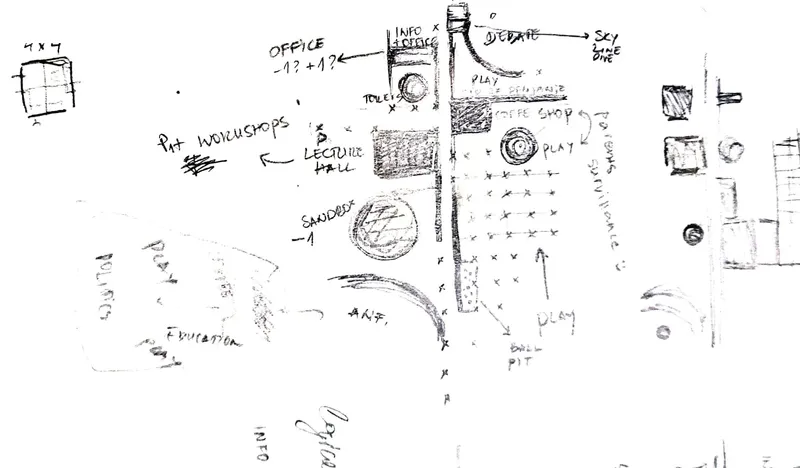 4 x 4
OFFICE
-1? +1?
INFO
+ OFFICE
DEBATE
SKY
LINE
DIVE
PLAY
TOILETS
COFFE SHOP
PLAY
PARENTS
SURVILLANCE
P+t WORKSHOPS
LECTURE
HALL
SANDBOX
-1
POLITICS
PLAY
EDUCATION
PLAY
BALL
PIT
INFO